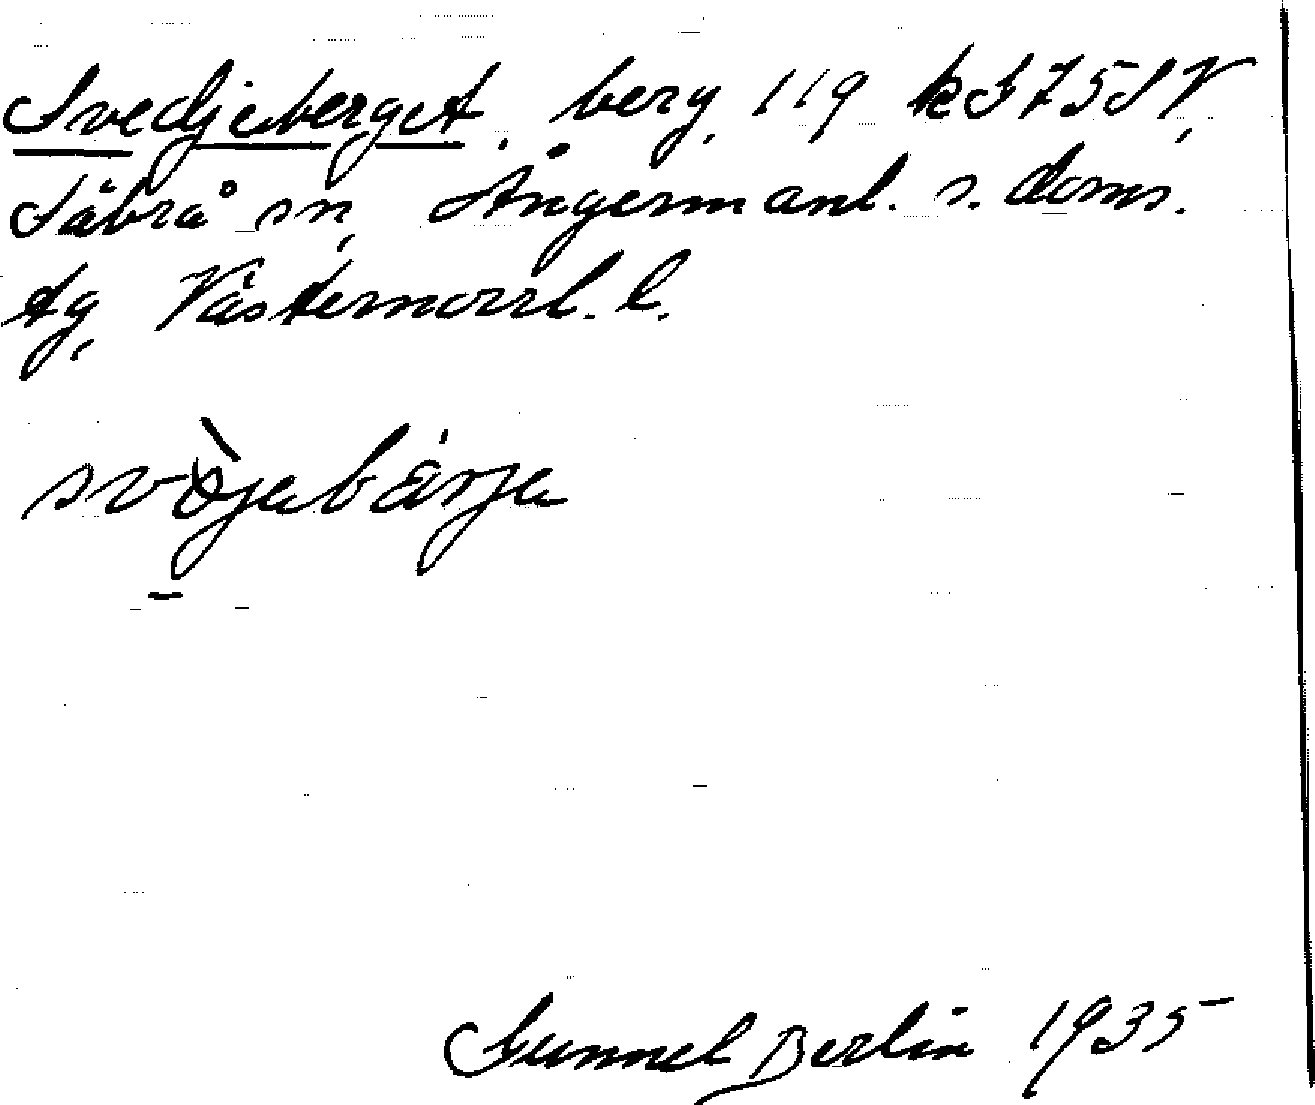 Svedjeberget, berg, 119 k375SV,
Säbrå sn, Ångermanl. s. doms.
tg, Västernorrl. l.
svòjabärja
Gunnel Berlin 1935